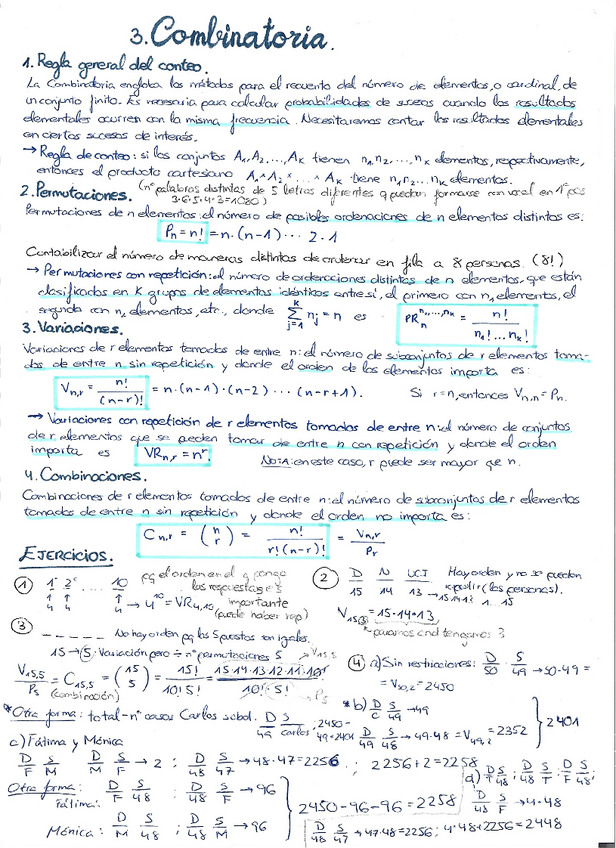 3. Combinatoria.
1. Regla general del conteo.
La Combinatoria engloba los métodos para el recuento del número de elementos, o cardinal, de
un conjunto finito. Es necesaria para calcular probabilidades de sucesos cuando los resultados
elementales ocurren con la misma frecuencia. Necesitaremos contar los resultados elementales
en ciertos sucesos de interés.
→ Regla de conteo: si los conjuntos A₁, A₂, ..., Aₖ tienen n₁, n₂, ..., nₖ elementos, respectivamente,
entonces el producto cartesiano A₁ × A₂ × ... × Aₖ tiene n₁n₂...nₖ elementos.
2. Permutaciones. (nº palabras distintas de 5 letras diferentes q puedan formarse con vocal en 1ª pos
3·6·5·4·3=1080)
Permutaciones de n elementos: el número de posibles ordenaciones de n elementos distintos es:
Pn = n! = n·(n-1) ... 2·1
Contabilizar el número de maneras distintas de ordenar en fila a 8 personas. (8!)
→ Permutaciones con repetición: el número de ordenaciones distintas de n elementos, que están
clasificados en k grupos de elementos idénticos entre sí, el primero con n₁ elementos, el
segundo con n₂ elementos, etc., donde Σ(j=1, k) nj = n es PRn^(n₁,...,nₖ) = n! / (n₁!...nₖ!)
3. Variaciones.
Variaciones de r elementos tomados de entre n: el número de subconjuntos de r elementos toma-
dos de entre n sin repetición y donde el orden de los elementos importa es:
Vn,r = n!/(n-r)! = n·(n-1)·(n-2) ... (n-r+1). Si r=n, entonces Vn,n = Pn.
→ Variaciones con repetición de r elementos tomados de entre n: el número de conjuntos
de r elementos que se pueden tomar de entre n con repetición y donde el orden
importa es VRn,r = n^r NOTA: en este caso, r puede ser mayor que n.
4. Combinaciones.
Combinaciones de r elementos tomados de entre n: el número de subconjuntos de r elementos
tomados de entre n sin repetición y donde el orden no importa es:
Cn,r = (n r) = n!/(r!(n-r)!) = Vn,r/Pr
EJERCICIOS.
① 1ª 2ª ... 10 pq el orden en el q pongo
las respuestas es
4 4 4 → 4¹⁰ = VR4,10 importante
(puede haber rep)
② D N UCI Hay orden y no se pueden
15 14 13 repetir (las personas).
V15,3 = 15·14·13
③ _ _ _ _ _ No hay orden pq los 5 puestos son iguales.
15 → 5: Variación pero ÷ nº permutaciones 5
V15,5/P5 = C15,5 = (15 5) = 15!/(10!5!) = 15·14·13·12·11·10!/(10!·5!)
(combinación)
④ a) Sin restricciones: D/50 · S/49 → 50·49 =
= V50,2 = 2450
*Otra forma: total - nº casos Carlos sobol. D/49 S/Carlos : 2450-49=2401
*b) D/C S/49 → 49
D/49 S/48 → 49·48 = V49,2 = 2352 } 2401
c) Fátima y Mónica
D/F S/M D/M S/F → 2 ; D/48 S/47 → 48·47=2256 ; 2256+2=2258
Otra forma: D/F S/48 ; D/48 S/F → 96
Fátima:
Mónica: D/M S/48 ; D/48 S/M → 96 } 2450-96-96 = 2258
D/48 S/47 → 47·48=2256; 4·48+2256=2448